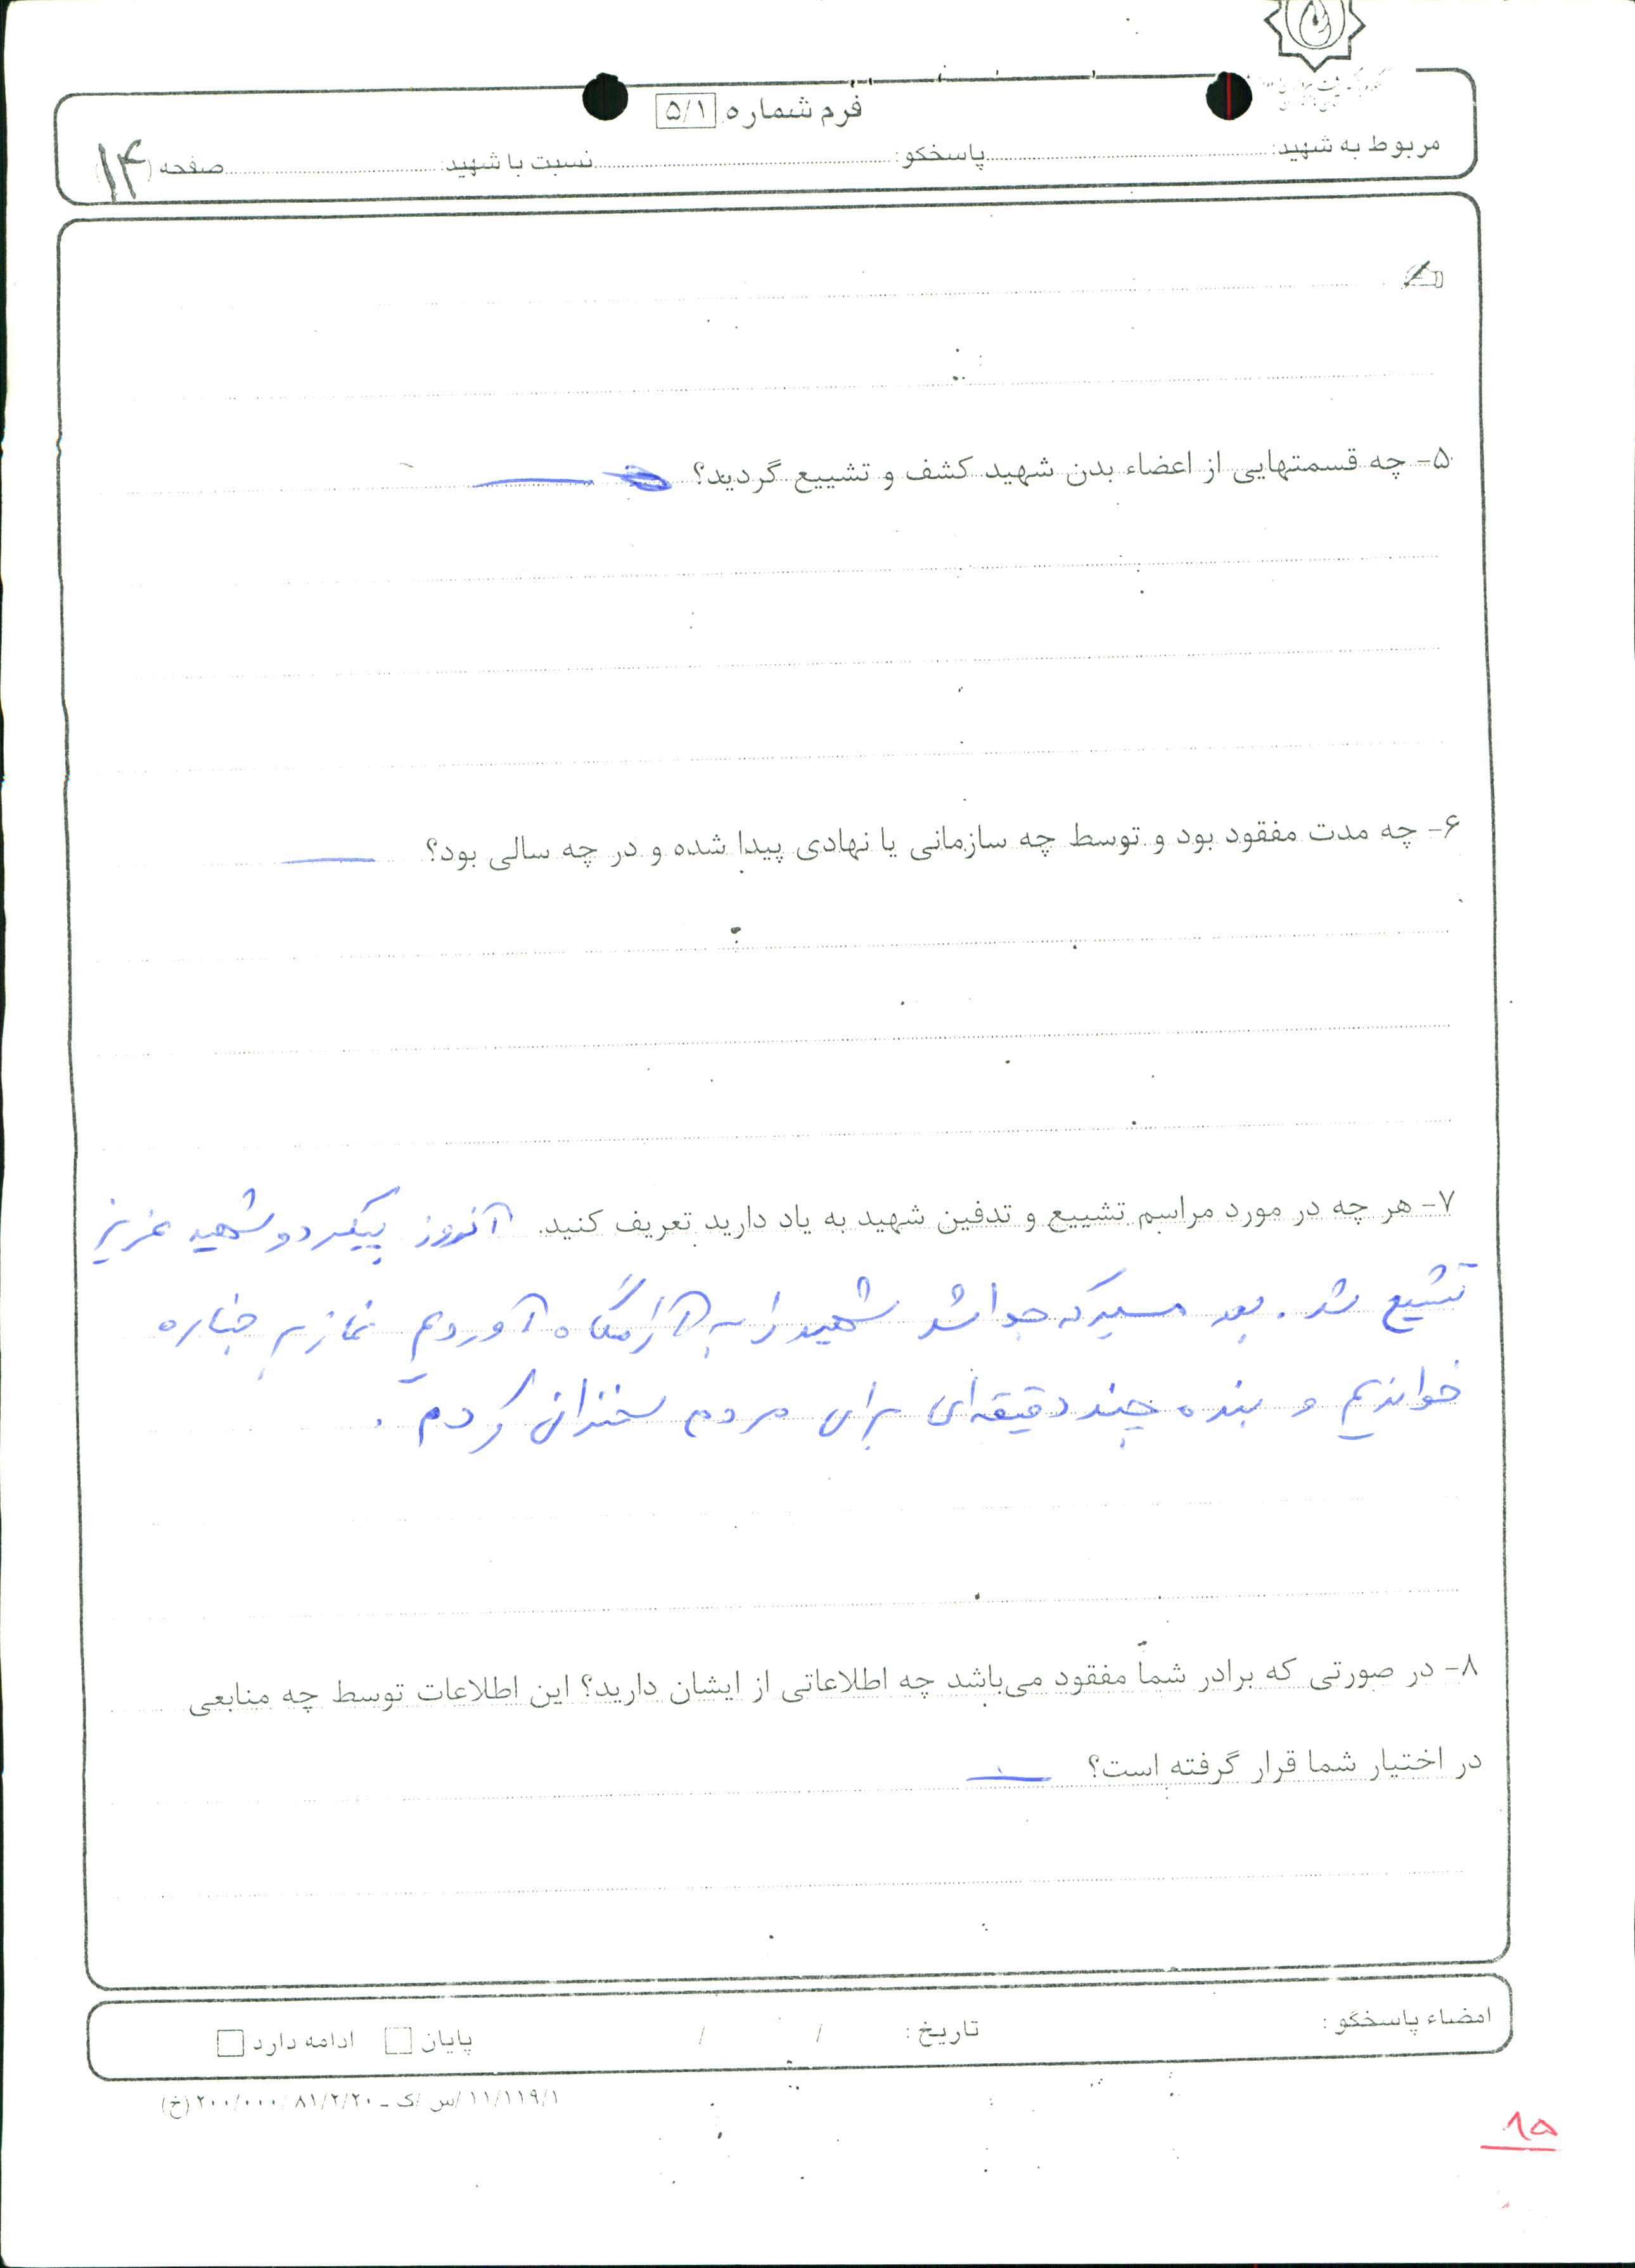 فرم شماره ۵/۱
مربوط به شهید: پاسخگو: نسبت با شهید: صفحه (۱۴)
۵- چه قسمتهایی از اعضاء بدن شهید کشف و تشییع گردید؟ —
۶- چه مدت مفقود بود و توسط چه سازمانی یا نهادی پیدا شده و در چه سالی بود؟ —
۷- هر چه در مورد مراسم تشییع و تدفین شهید به یاد دارید تعریف کنید. آنروز پیکر دو شهید عزیز
تشیع شد. بعد مسیر که جدا شد شهید را به آرامگاه آوردیم نماز بر جنازه
خواندیم و بنده چند دقیقه‌ای برای مردم سخنرانی کردم.
۸- در صورتی که برادر شما مفقود می‌باشد چه اطلاعاتی از ایشان دارید؟ این اطلاعات توسط چه منابعی
در اختیار شما قرار گرفته است؟ —
امضاء پاسخگو: تاریخ: / / پایان □ ادامه دارد □
۱۱/۱۱۹/۱/س/ک ـ ۸۱/۲/۲۰ /۲۰۰/۰۰۰ (خ)
۸۵